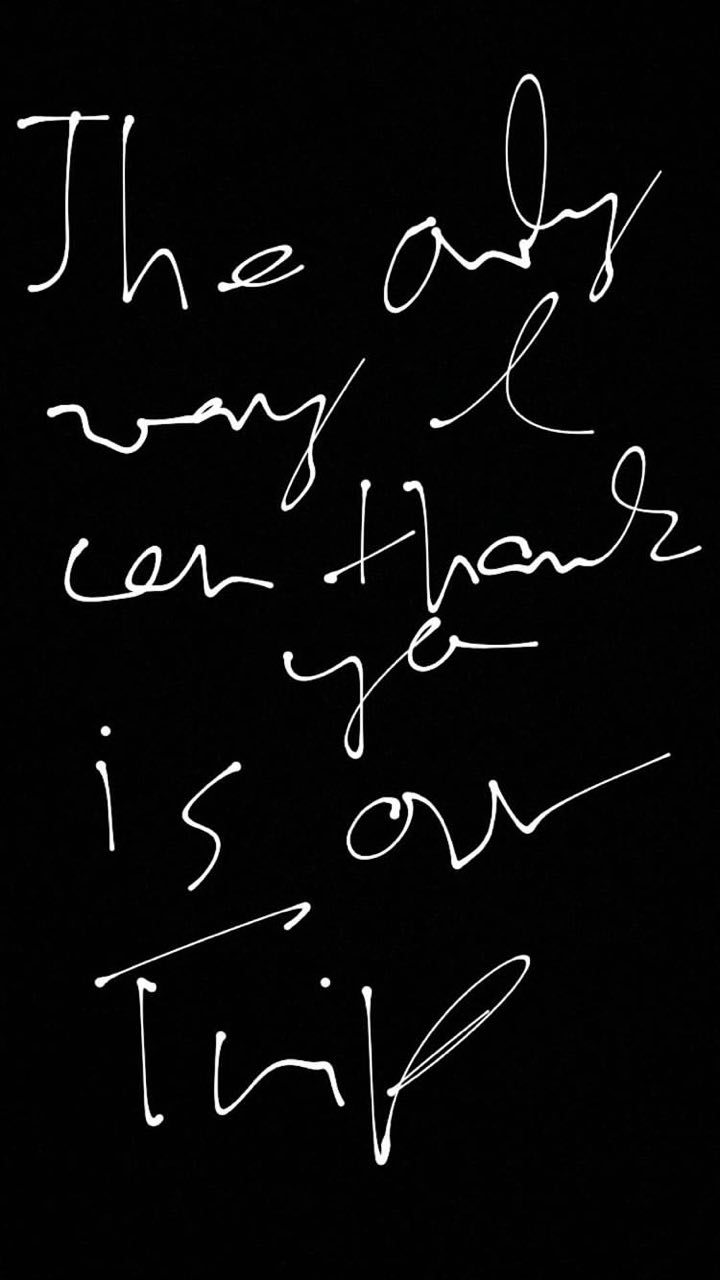 The only
way I
can thank
you
is our
Trip